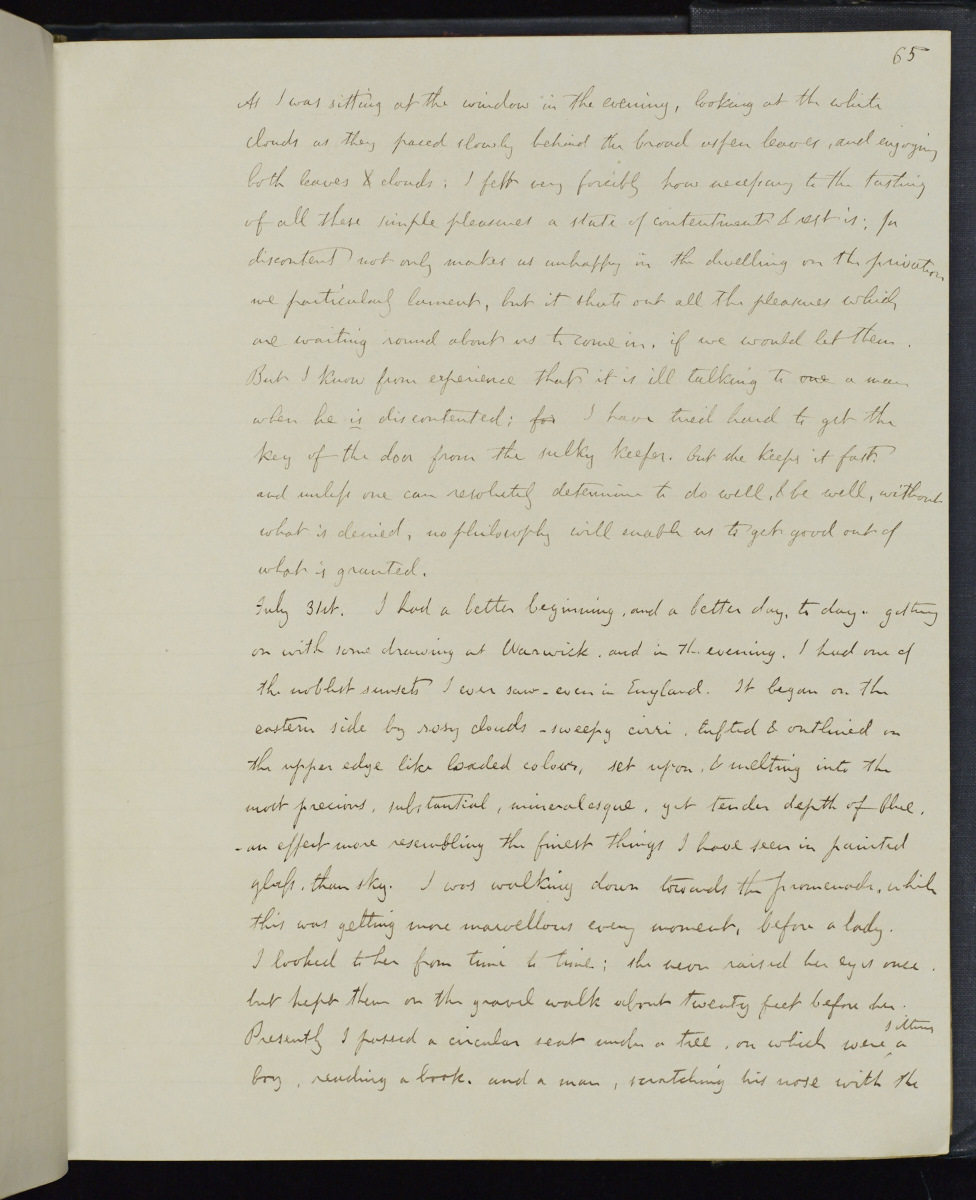 65
As I was sitting at the window in the evening, looking at the white
clouds as they paced slowly behind the broad aspen leaves, and enjoying
both leaves & clouds; I felt very forcibly how necessary to the tasting
of all these simple pleasures a state of contentment & rest is; for
discontent not only makes us unhappy in the dwelling on the privation
we particularly lament, but it shuts out all the pleasures which
are waiting round about us to come in, if we would let them.
But I know from experience that it is ill talking to one a man
when he is discontented; for I have tried hard to get the
key of the door from the sulky keeper. but she keeps it fast.
and unless one can resolutely determine to do well, & be well, without
what is denied, no philosophy will enable us to get good out of
what is granted.
July 31st. I had a better beginning, and a better day, to day. getting
on with some drawing at Warwick. and in the evening. I had one of
the noblest sunsets I ever saw - even in England. It began on the
eastern side by rosy clouds - sweepy cirri, tufted & outlined on
the upper edge like loaded colour, set upon, & melting into the
most precious, substantial, mineralesque, yet tender depth of blue.
- an effect more resembling the finest things I have seen in painted
glass, than sky. I was walking down towards the promenade, while
this was getting more marvellous every moment, before a lady.
I looked to her from time to time; she never raised her eyes once.
but kept them on the gravel walk about twenty feet before her.
Presently I passed a circular seat under a tree, on which were sitting a
boy, reading a book. and a man, scratching his nose with the